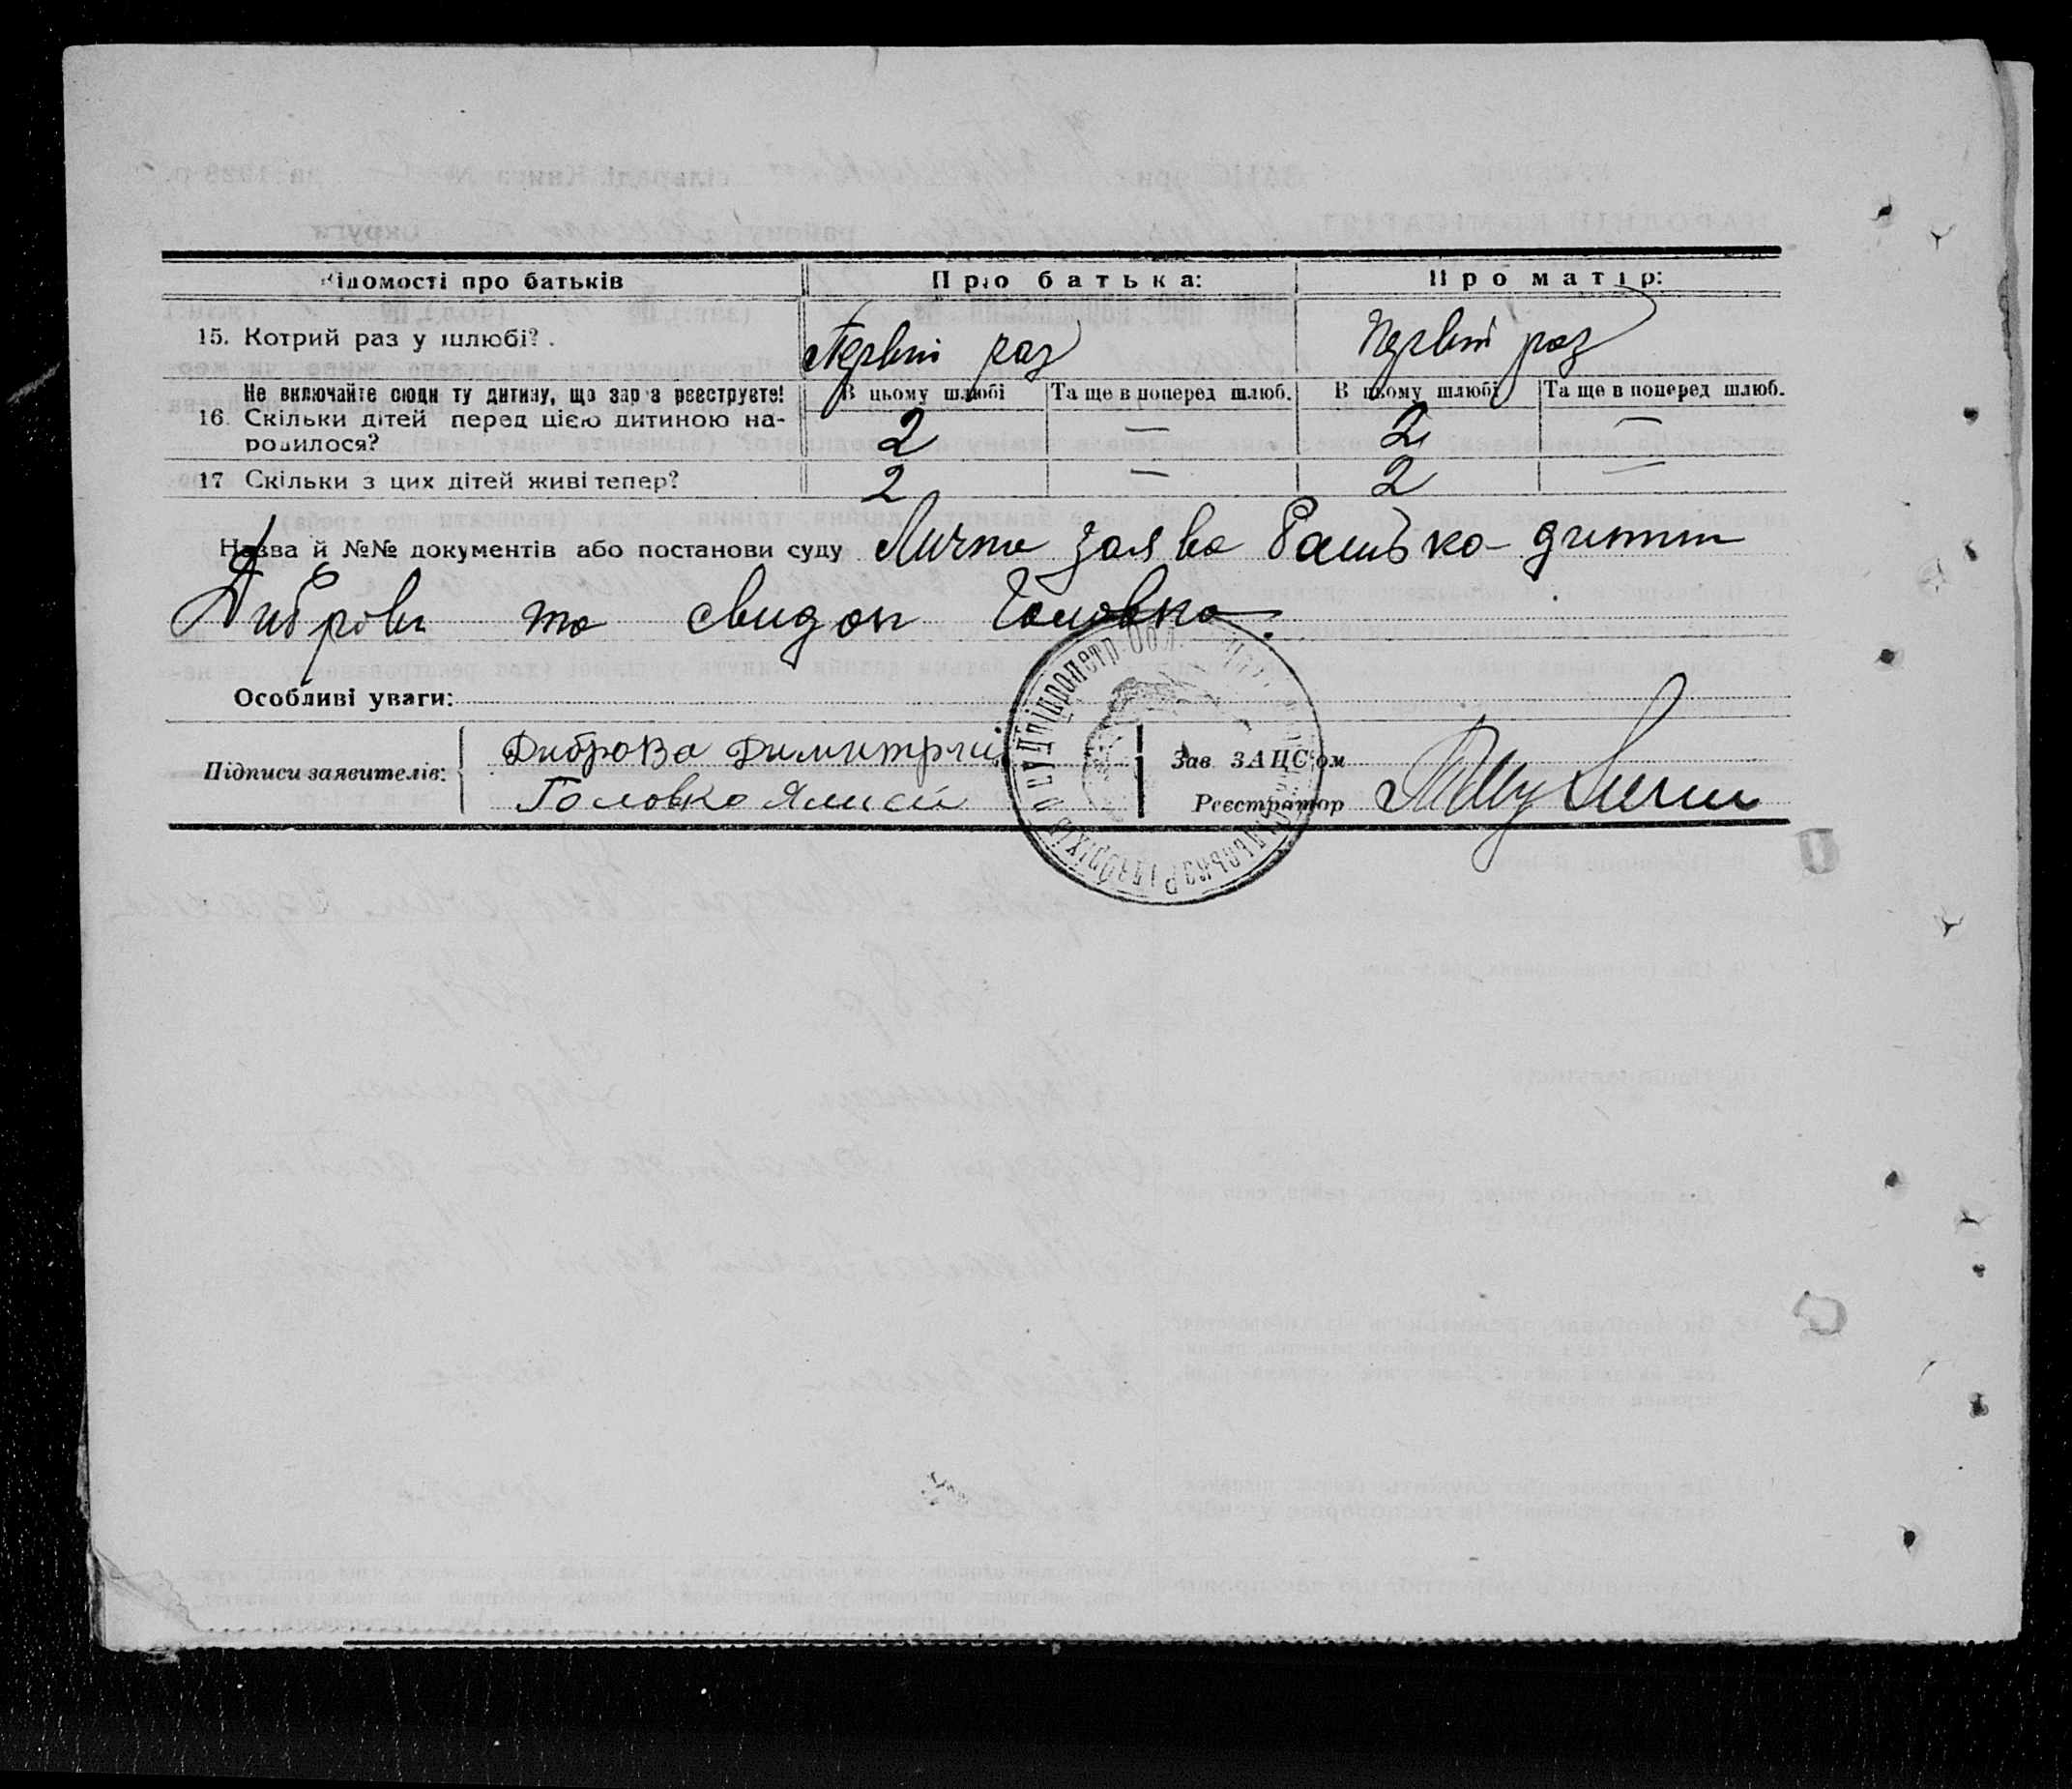 ідомості про батьків
Про батька:
Про матір:
15. Котрий раз у шлюбі?
Первий раз
Первий раз
Не включайте сюди ту дитину, що зараз реєструєте!
В цьому шлюбі
Та ще в поперед шлюб.
В цьому шлюбі
Та ще в поперед шлюб.
16. Скільки дітей перед цією дитиною народилося?
2 — 2 —
17 Скільки з цих дітей живі тепер?
2 — 2 —
Назва й №№ документів або постанови суду Лична заява батька дитини
Диброви та свидок Головко.
Особливі уваги:
Підписи заявителів:
Диброва Димитрий
Головко
Зав. ЗАЦС'ом
Реєстратор
Дніпропетр. Обл.